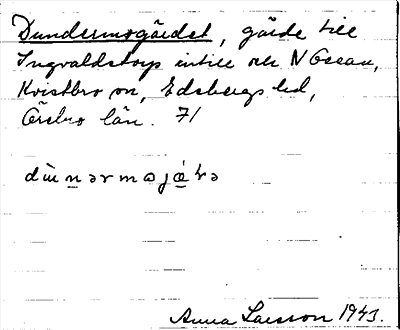 Dundermogärdet, gärde till
Ingvaldstorp intill och N Ossau,
Kvistbro sn, Edsbergs hd,
Örebro län. 71
Anna Larsson 1943.